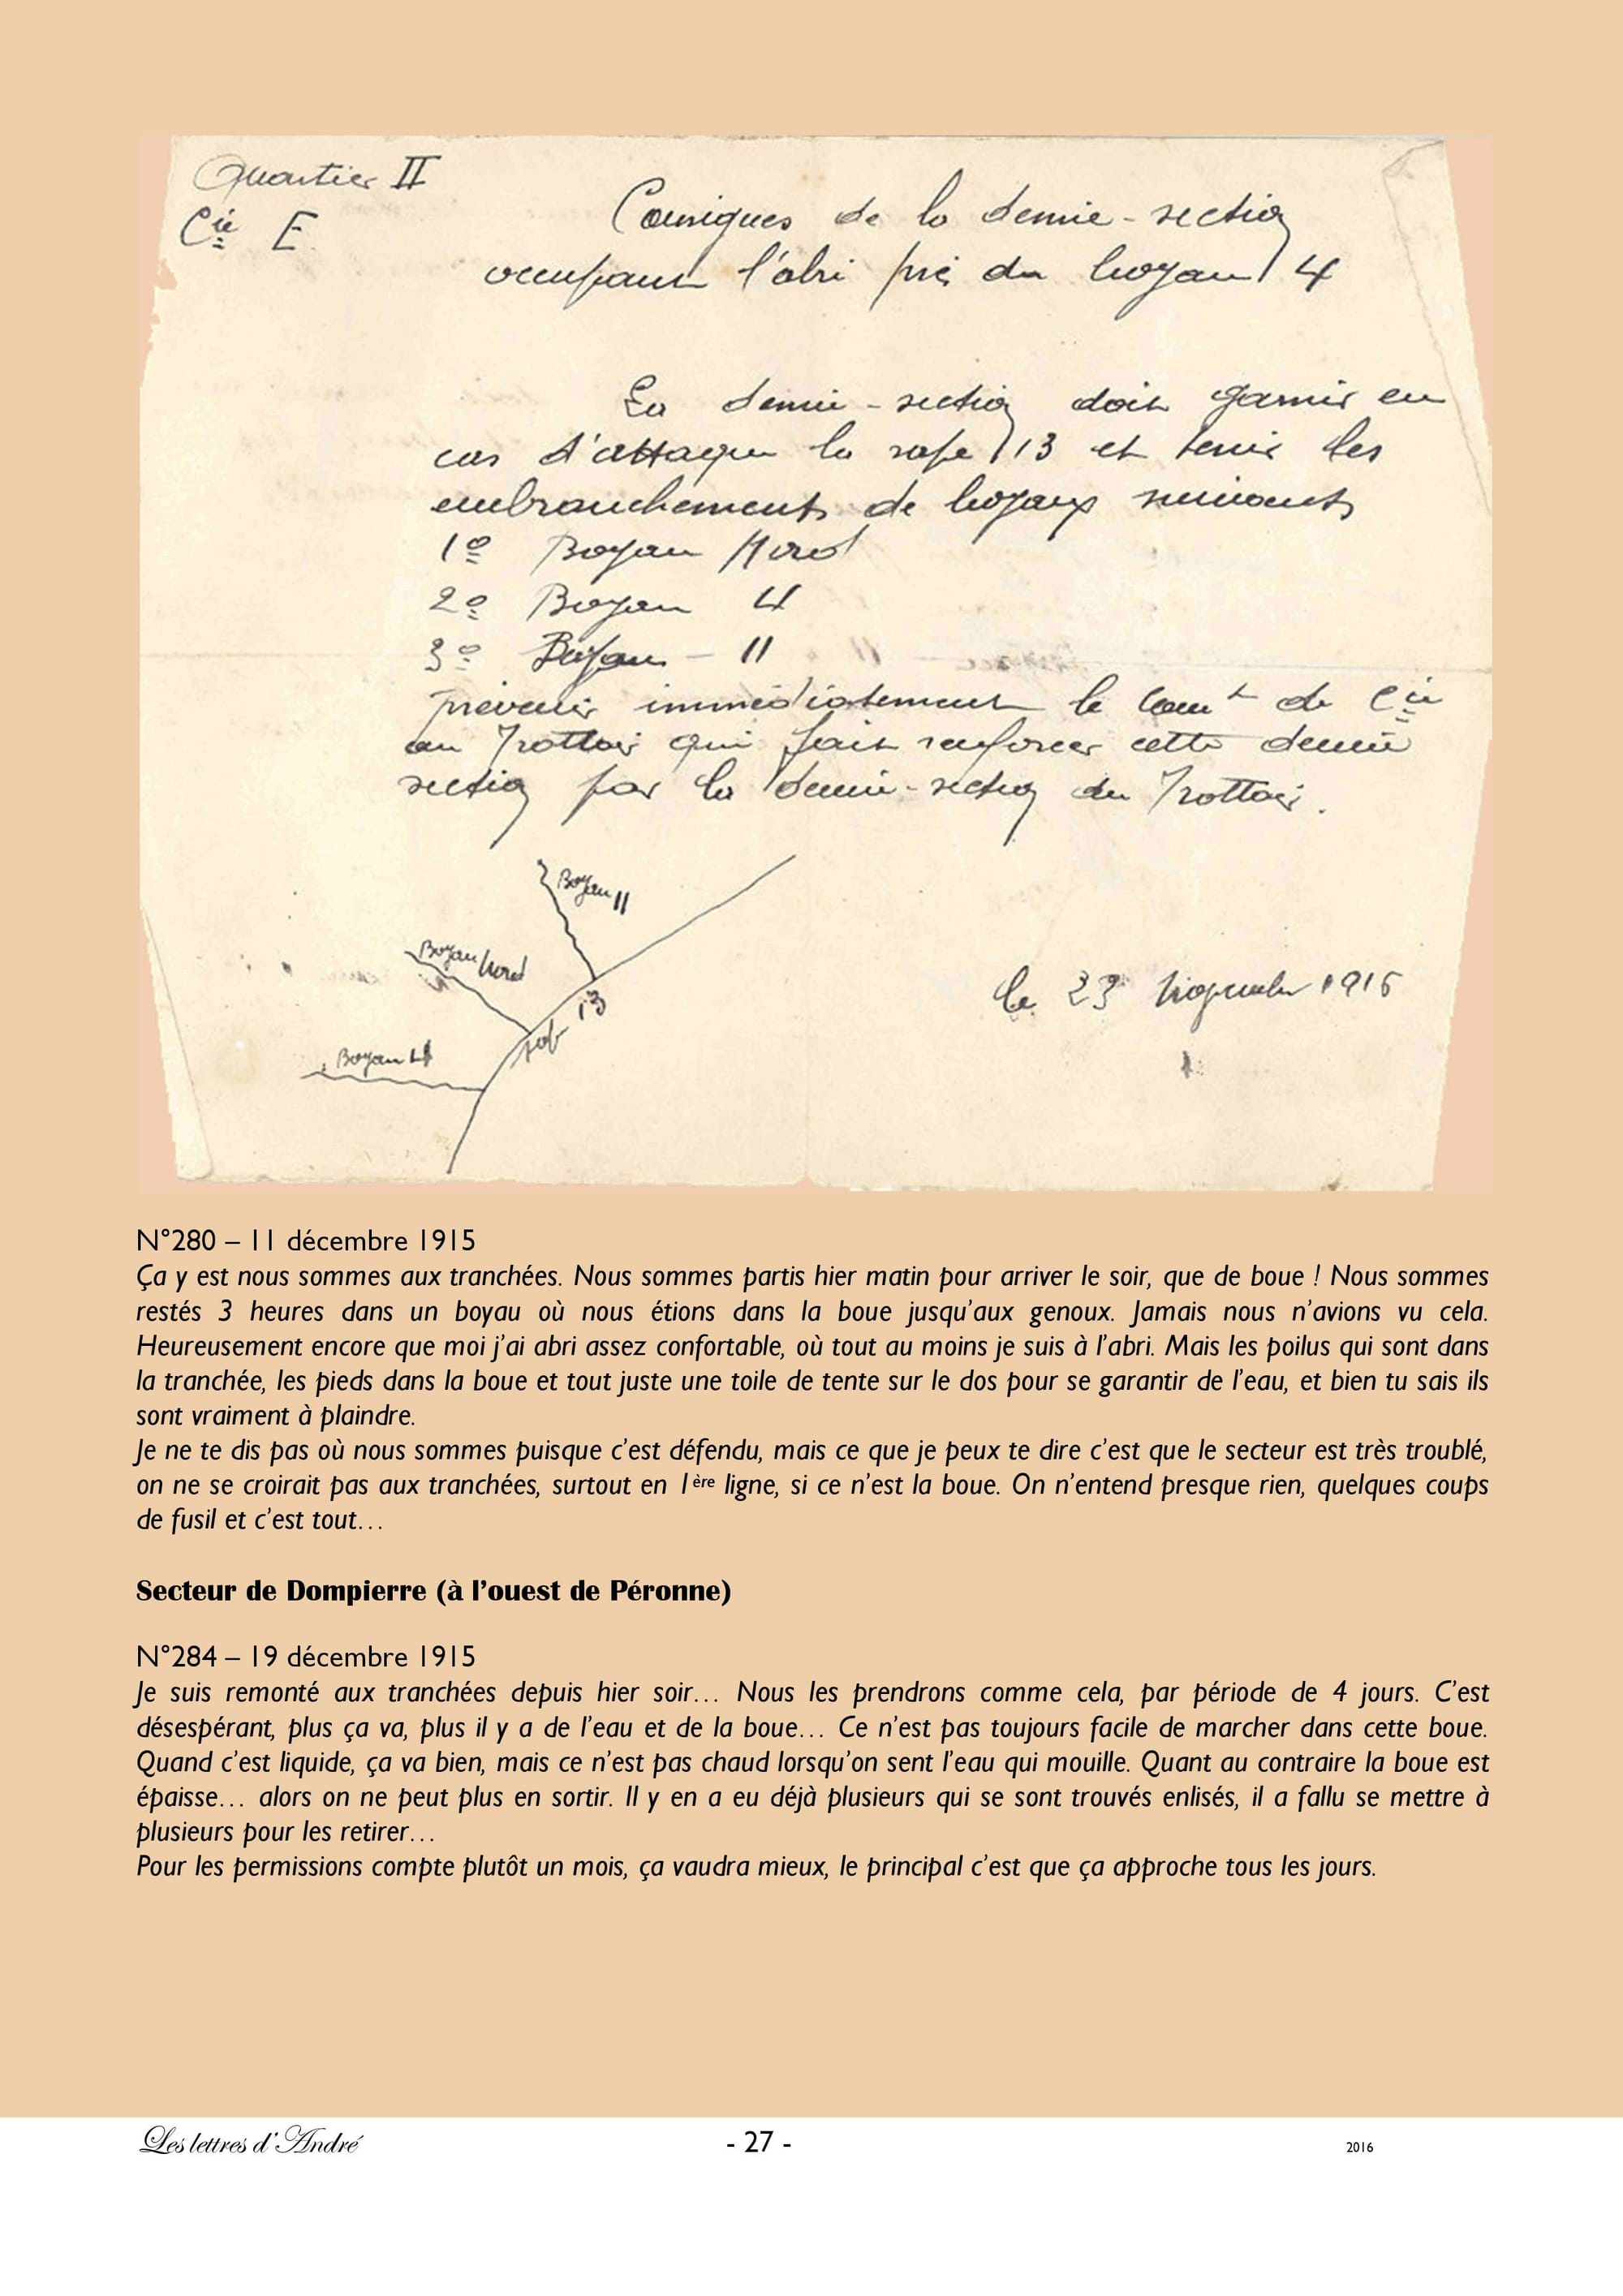 Quartier II
Cie E
Consignes de la demie-section
occupant l'abri près du boyau 4
La demie-section doit garnir en
cas d'attaque la sape 13 et tenir les
embranchements de boyaux suivants
1º Boyau Nord
2º Boyau 4
3º Boyau - 11
prévenir immédiatement le Comt de Cie
au Trottoir qui fait renforcer cette demie
section par la demie-section du Trottoir.
Boyau 11
Boyau Nord
13
Boyau 4
le 23 Novembre 1915
N°280 – 11 décembre 1915
Ça y est nous sommes aux tranchées. Nous sommes partis hier matin pour arriver le soir, que de boue ! Nous sommes
restés 3 heures dans un boyau où nous étions dans la boue jusqu'aux genoux. Jamais nous n'avions vu cela.
Heureusement encore que moi j'ai abri assez confortable, où tout au moins je suis à l'abri. Mais les poilus qui sont dans
la tranchée, les pieds dans la boue et tout juste une toile de tente sur le dos pour se garantir de l'eau, et bien tu sais ils
sont vraiment à plaindre.
Je ne te dis pas où nous sommes puisque c'est défendu, mais ce que je peux te dire c'est que le secteur est très troublé,
on ne se croirait pas aux tranchées, surtout en 1ère ligne, si ce n'est la boue. On n'entend presque rien, quelques coups
de fusil et c'est tout…
Secteur de Dompierre (à l'ouest de Péronne)
N°284 – 19 décembre 1915
Je suis remonté aux tranchées depuis hier soir… Nous les prendrons comme cela, par période de 4 jours. C'est
désespérant, plus ça va, plus il y a de l'eau et de la boue… Ce n'est pas toujours facile de marcher dans cette boue.
Quand c'est liquide, ça va bien, mais ce n'est pas chaud lorsqu'on sent l'eau qui mouille. Quant au contraire la boue est
épaisse… alors on ne peut plus en sortir. Il y en a eu déjà plusieurs qui se sont trouvés enlisés, il a fallu se mettre à
plusieurs pour les retirer…
Pour les permissions compte plutôt un mois, ça vaudra mieux, le principal c'est que ça approche tous les jours.
Les lettres d'André
- 27 -
2016